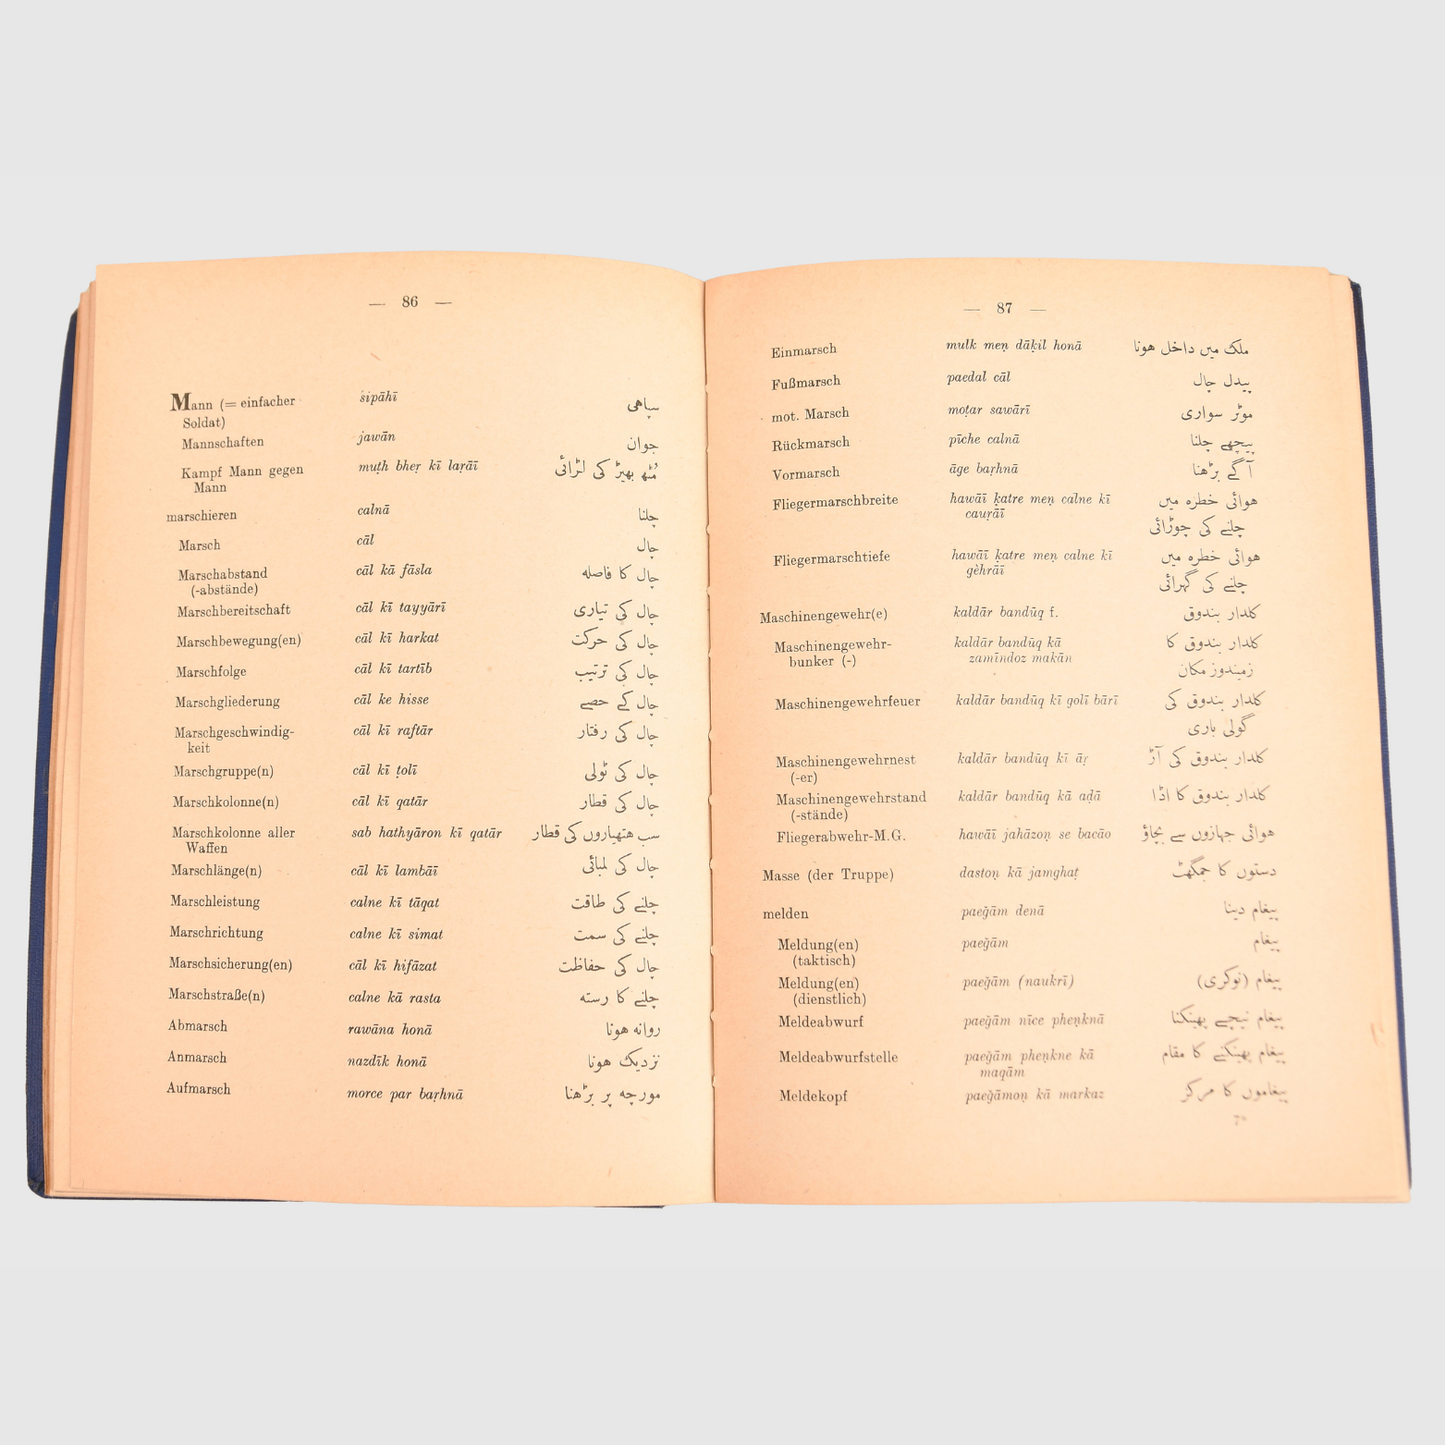 — 86 —
Mann (= einfacher sipāhī سپاهی
Soldat)
Mannschaften jawān جوان
Kampf Mann gegen muṭh bheṛ kī laṛāī مُٹھ بھیڑ کی لڑائی
Mann
marschieren calnā چلنا
Marsch cāl چال
Marschabstand cāl kā fāsla چال کا فاصله
(-abstände)
Marschbereitschaft cāl kī tayyārī چال کی تیاری
Marschbewegung(en) cāl kī harkat چال کی حرکت
Marschfolge cāl kī tartīb چال کی ترتیب
Marschgliederung cāl ke hisse چال کے حصے
Marschgeschwindig- cāl kī raftār چال کی رفتار
keit
Marschgruppe(n) cāl kī ṭolī چال کی ٹولی
Marschkolonne(n) cāl kī qatār چال کی قطار
Marschkolonne aller sab hathyāron kī qatār سب هتھیاروں کی قطار
Waffen
Marschlänge(n) cāl kī lambāī چال کی لمبائی
Marschleistung calne kī tāqat چلنے کی طاقت
Marschrichtung calne kī simat چلنے کی سمت
Marschsicherung(en) cāl kī hifāzat چال کی حفاظت
Marschstraße(n) calne kā rasta چلنے کا رسته
Abmarsch rawāna honā روانه هونا
Anmarsch nazdīk honā نزدیک هونا
Aufmarsch morce par baṛhnā مورچه پر بڑهنا
— 87 —
Einmarsch mulk meṇ dāḵil honā ملک میں داخل هونا
Fußmarsch paedal cāl پیدل چال
mot. Marsch moṭar sawārī موٹر سواری
Rückmarsch pīche calnā پیچھے چلنا
Vormarsch āge baṛhnā آگے بڑهنا
Fliegermarschbreite hawāī ḵatre meṇ calne kī هوائی خطره میں
cauṛāī چلنے کی چوڑائی
Fliegermarschtiefe hawāī ḵatre meṇ calne kī هوائی خطره میں
gèhrāī چلنے کی گہرائی
Maschinengewehr(e) kaldār bandūq f. کلدار بندوق
Maschinengewehr- kaldār bandūq kā کلدار بندوق کا
bunker (-) zamīndoz makān زمیندوز مکان
Maschinengewehrfeuer kaldār bandūq kī golī bārī کلدار بندوق کی
گولی باری
Maschinengewehrnest kaldār bandūq kī āṛ کلدار بندوق کی آڑ
(-er)
Maschinengewehrstand kaldār bandūq kā aḍā کلدار بندوق کا اڈا
(-stände)
Fliegerabwehr-M.G. hawāī jahāzoṇ se bacāo هوائی جہازوں سے بچاؤ
Masse (der Truppe) dastoṇ kā jamghaṭ دستوں کا جمگھٹ
melden paeğām denā پیغام دینا
Meldung(en) paeğām پیغام
(taktisch)
Meldung(en) paeğām (naukrī) پیغام (نوکری)
(dienstlich)
Meldeabwurf paeğām nīce pheṇknā پیغام نیچے پھینکنا
Meldeabwurfstelle paeğām pheṇkne kā پیغام پھینکنے کا مقام
maqām
Meldekopf paeğāmoṇ kā markaz پیغاموں کا مرکز